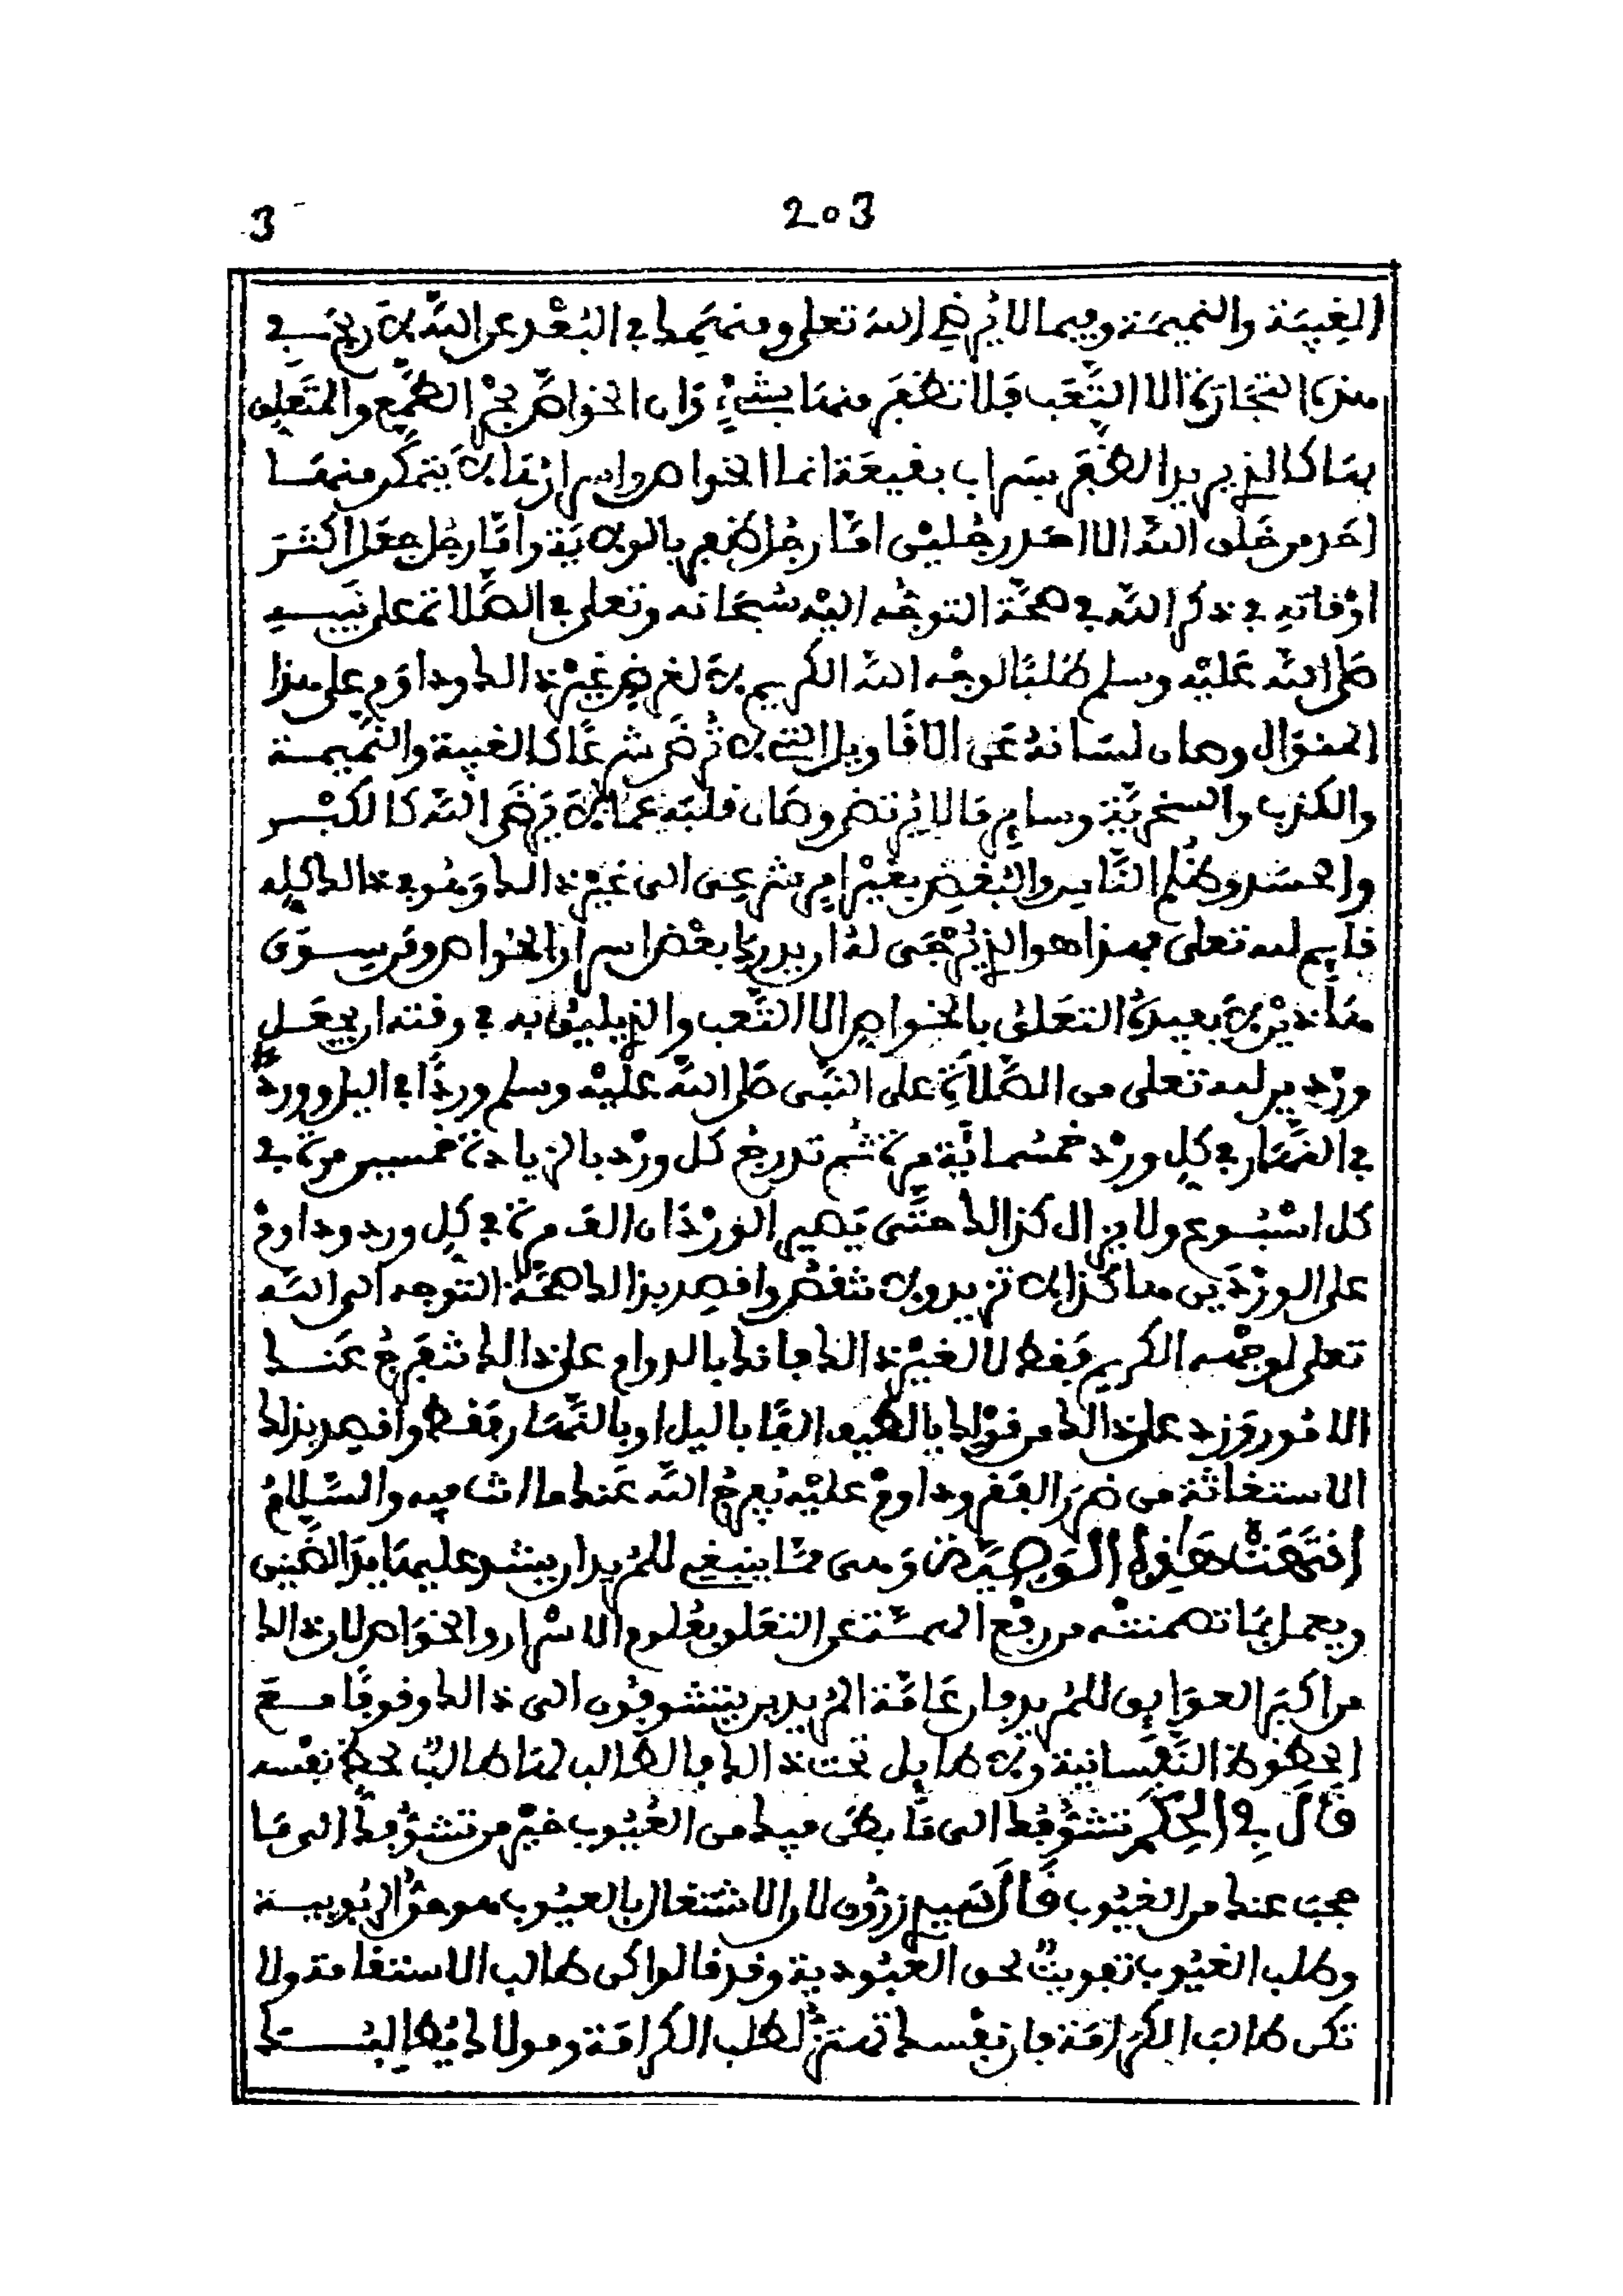 3 203
الغيبة والنميمة وفيما لا يرضي الله تعلى ومنهمك في البعد عن الله لا ربح في
هذه التجارة الا التعب فلا تظفر منها بشيء وان الخواص بحر الطمع والمتعلق
بها كالذي يريد الظفر بسراب بقيعة انما الخواص واسرارها لا يتمكن منها
احد من خلق الله الا احد رجلين اما رجل ظفر بالولاية واما رجل جعل اكثر
اوقاته في ذكر الله في صحة التوجه اليه سبحانه وتعلى في الصلاة على نبيه
صلى الله عليه وسلم طلبا لوجه الله الكريم لا لغرض غير ذالك وداوم على هذا
المنوال وصان لسانه عن الاقاويل التي لا ترضى شرعا كالغيبة والنميمة
والكذب والسخرية وساير ما لا يرتضى وصان قلبه عما لا يرضى الله كالكبر
والحسد وظلم الناس والبغض بغير امر شرعي الى غير ذالك وهو في ذالك كله
قايم لله تعلى فهذا هو الذي يرجى له ان يدرك بعض اسرار الخواص ومن سوى
هاذين لا يفيده التعلق بالخواص الا التعب والذي يليق به في وقته ان يجعل
ورد ين لله تعلى من الصلاة على النبي صلى الله عليه وسلم وردا في اليل ووردا
في النهار في كل ورد خمسمائة مرة ثم تدرج كل ورد بالزيادة خمسين مرة في
كل اسبوع ولا يزال كذالك حتى يصير الوردان الف مرة في كل ورد وداوم
على الوردين هاكذا لا تزيد ولا تنقص واقصد بذالك صحة التوجه الى الله
تعلى لوجهه الكريم فقط لا لغير ذالك فانك بالدوام على ذالك تنفرج عنك
الامور وزد على ذالك من قولك يالطيف الفا باليل او بالنهار فقط واقصد بذلك
الاستغاثة من ضرر الفقر وداوم عليه يفرج الله عنك ما انت فيه والسلام
انتهت هذه الوصية وهي مما ينبغي للمريد ان يشد عليها يد الضنين
ويعمل بما تضمنته من رفع الهمة عن التعلق بعلوم الاسرار والخواص لان ذالك
من اكبر العوايق للمريد فان عامة المريدين يتشوفون الى ذالك وقوفا مع
الحظوظ النفسانية ولا طايل تحت ذالك فالطالب لها طالب لحظ نفسه
قال في الحكم تشوفك الى ما بطن فيك من العيوب خير من تشوفك الى ما
حجب عنك من الغيوب قال الشيخ زروق لان الاشتغال بالعيوب هو حق الربوبية
وطلب الغيوب تفويت لحق العبودية وقد قالوا كن طالب الاستقامة ولا
تكن طالب الكرامة فان نفسك تهتز لطلب الكرامة ومولاك يطالبك